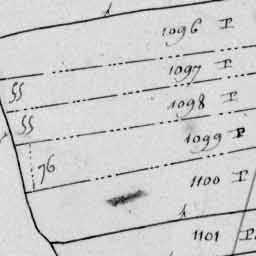 1096 P
1097 P
55
1098 P
55
1099 P
76
1100 P
1101 P.